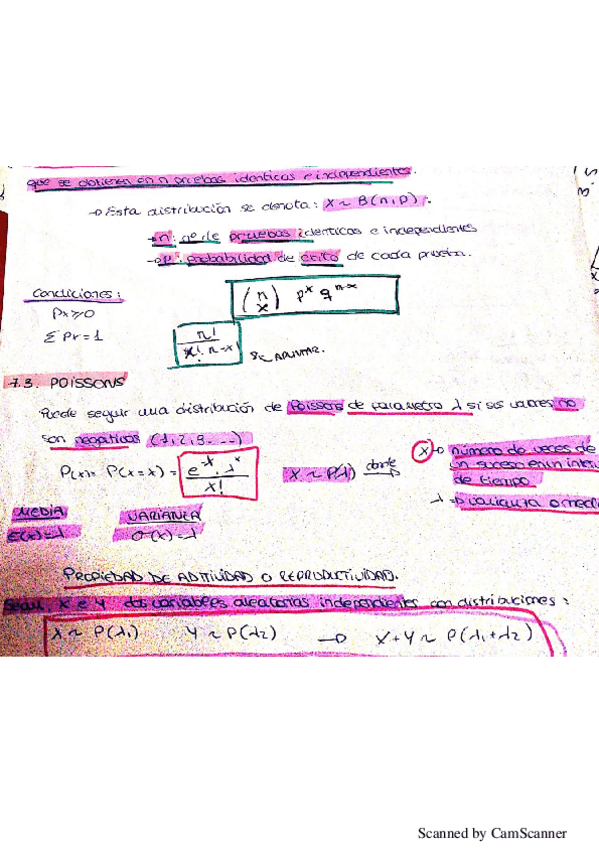 que se obtienen en n pruebas identicas e independientes.
→ Esta distribución se denota: X ~ B(n,p).
→ n: nº de pruebas identicas e independientes
→ p: probabilidad de éxito de cada prueba.
Condiciones:
Px ≥ 0
Σ Pr = 1
(n x) p^x q^n-x
n! / x! n-x!
Se ADJUNTAR.
7.3. POISSONS
Puede seguir una distribución de Poissons de parametro λ si sus valores no
son negativos (1,2,3....)
P(x) = P(X=x) = e^-λ . λ^x / x!
X ~ P(λ) donde
x→ número de veces de
un suceso en un inter
de tiempo
λ →
MEDIA
E(x)=λ
VARIANZA
σ(x)=λ
PROPIEDAD DE ADTIVIDAD O REPRODUCTIVIDAD.
X e Y dos variables aleatorias independientes con distribuciones:
X ~ P(λ1) Y ~ P(λ2) → X+Y ~ P(λ1+λ2)
Scanned by CamScanner